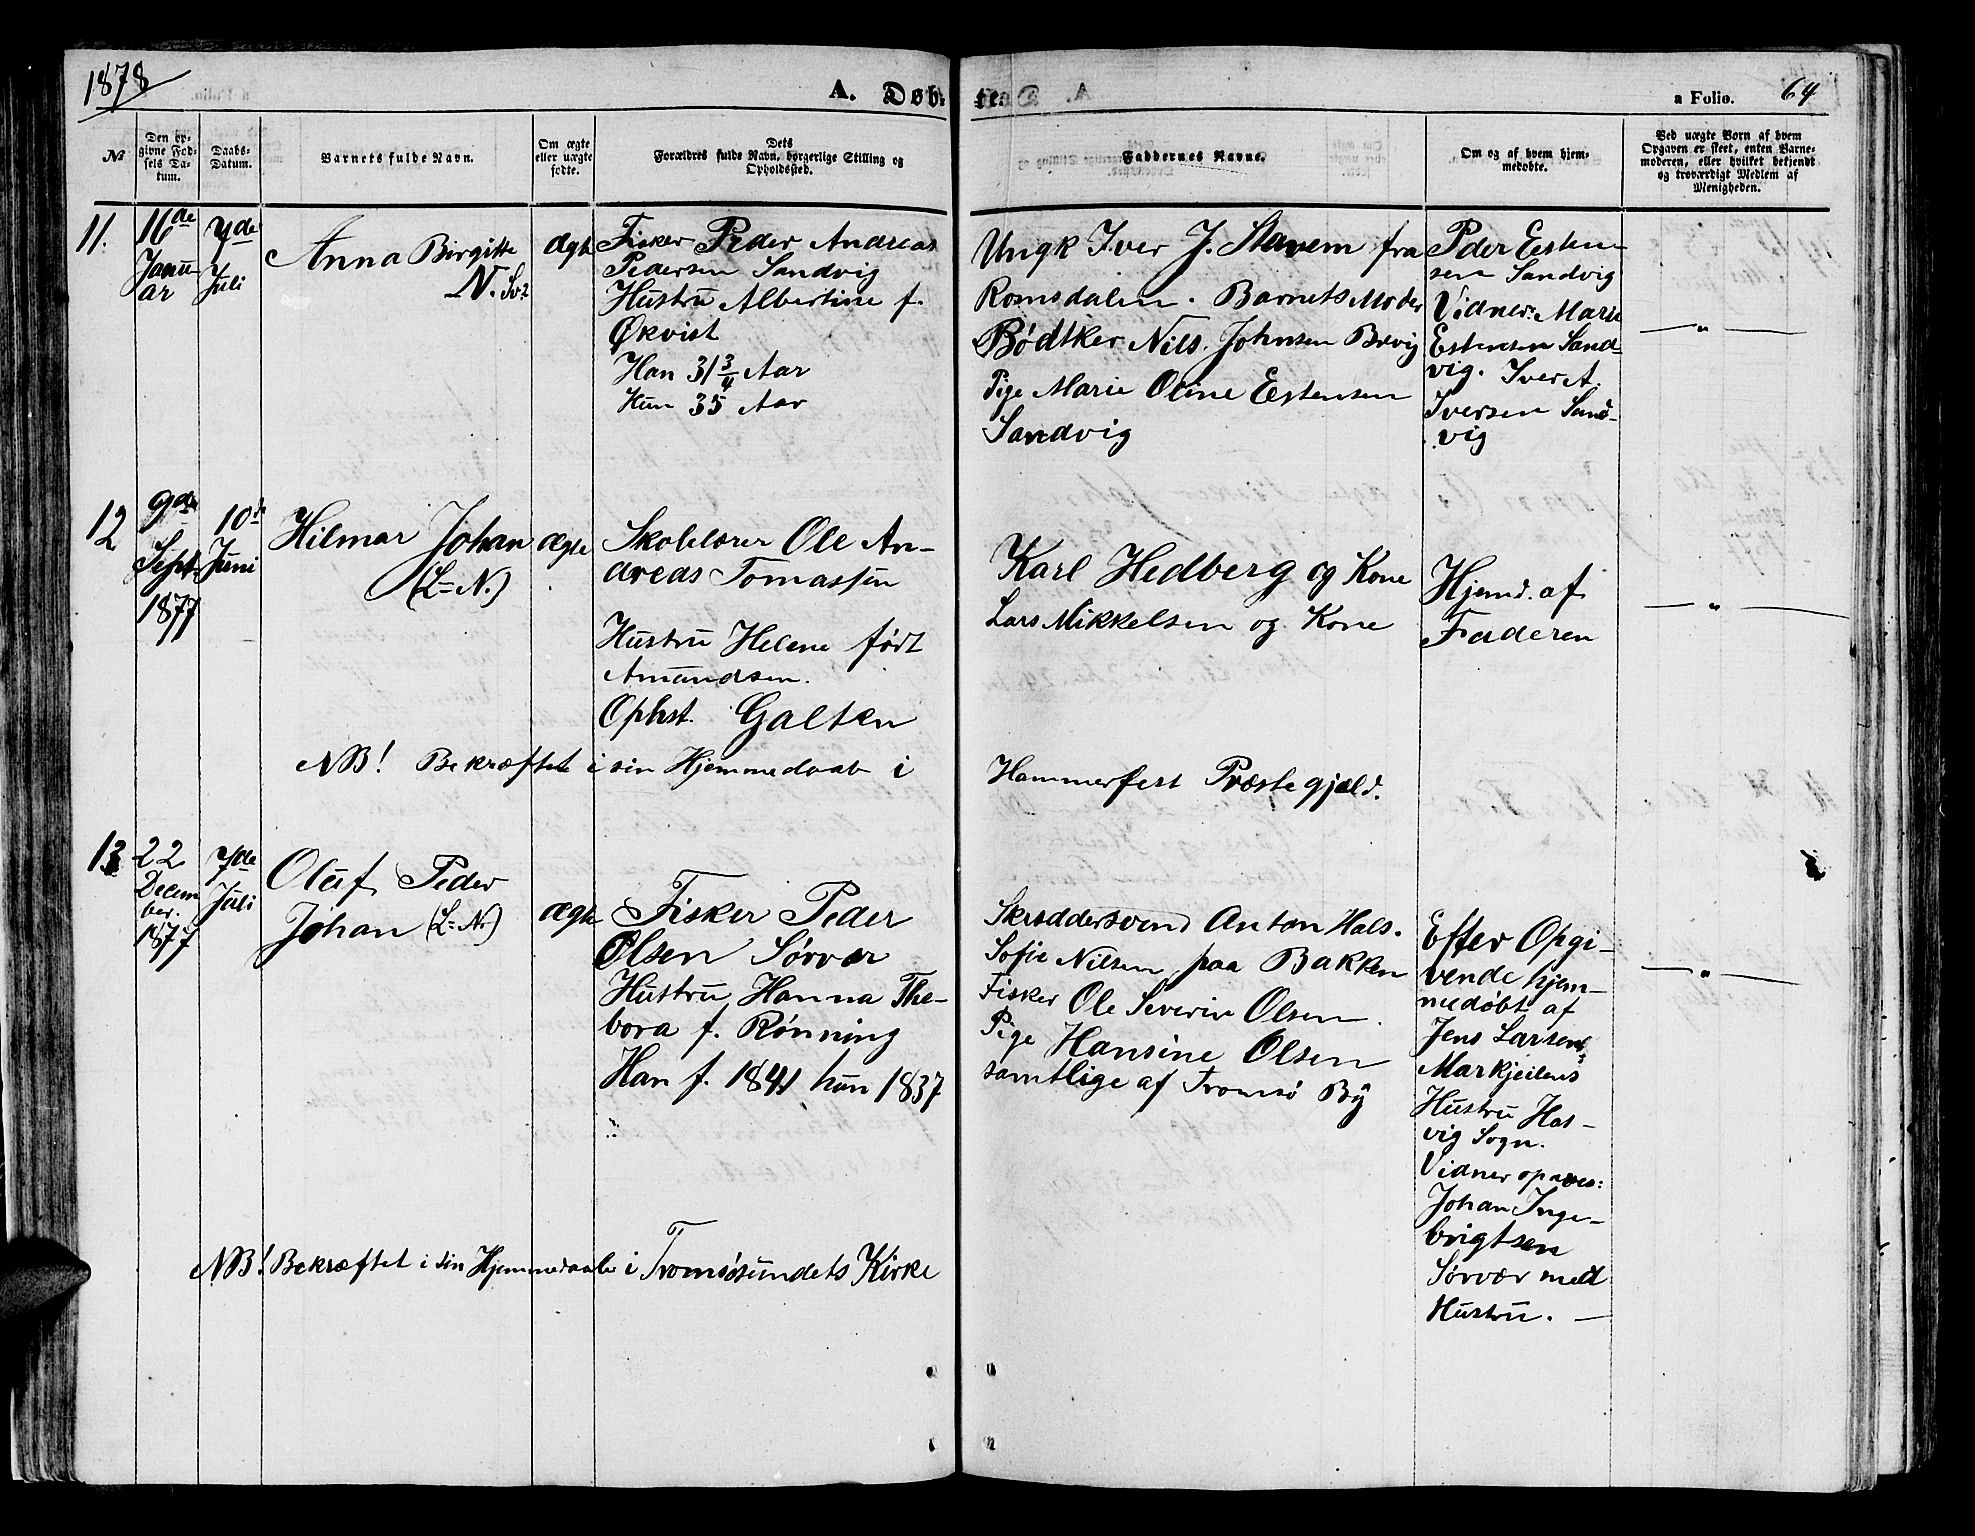 1878
A. Døb-
te.
a Folio. 64
№
Den op-
givne Fød-
sels Da-
tum.
Daabs-
Datum.
Barnets fulde Navn.
Om ægte
eller uægte
fødte.
Dets
Forældres fulde Navn, borgerlige Stilling og
Opholdssted.
Faddernes Navne.
Om og af hvem hjem-
medøbte.
Ved uægte Børn af hvem
Opgaven er skeet, enten Barne-
moderen, eller hvilket bekjendt
og troværdigt Medlem af
Menigheden.
11.
16de
Janu-
ar
7de
Juli
Anna Birgitte
N.
ægte
Fisker Peder Andreas
Pedersen Sandvig
Hustru Albertine f.
Økvist
Han 31 3/4 Aar
Hun 35 Aar
Ungk Iver J. Stavem fra
Romsdalen. Barnets Moder
Bødtker Nils Johnsen Brevig
Pige Marie Oline Eestensen
Sandvig
Peder Eesten-
sen Sandvig
Vidner: Marie
Estensen Sand-
vig. Iver A.
Iversen Sand-
vig
— " —
12
9de
Septr
1877
10de
Juni
Hilmar Johan
(L=N.)
ægte
Skolelærer Ole An-
dreas Tomassen
Hustru Helene født
Amundsen.
Ophst. Galten
Karl Hedberg og Kone
Lars Mikkelsen og Kone
Hjemd. af
Faderen
— " —
NB! Bekræftet i sin Hjemmedaab i
Hammerfest Præstegjæld.
13
22
Decem
ber.
1877
7de
Juli
Oluf Peder
Johan (L=N.)
ægte
Fisker Peder
Olsen Sørvær
Hustru Hanna The-
bora f. Rønning
Han f. 1841 hun 1837
Skræddersvend Anton Hals.
Sofie Nilsen paa Bakken
Fisker Ole Severin Olsen.
Pige Hansine Olsen
samtlige af Tromsø By
Efter Opgi-
vende hjem-
medøbt af
Jens Larsen
Markjeilens
Hustru Has-
vig Sogn.
Vidner opgives:
Johan Inge-
brigtsen
Sørvær med
Hustru. —
— " —
NB! Bekræftet i sin Hjemmedaab i Tromsøsundets Kirke